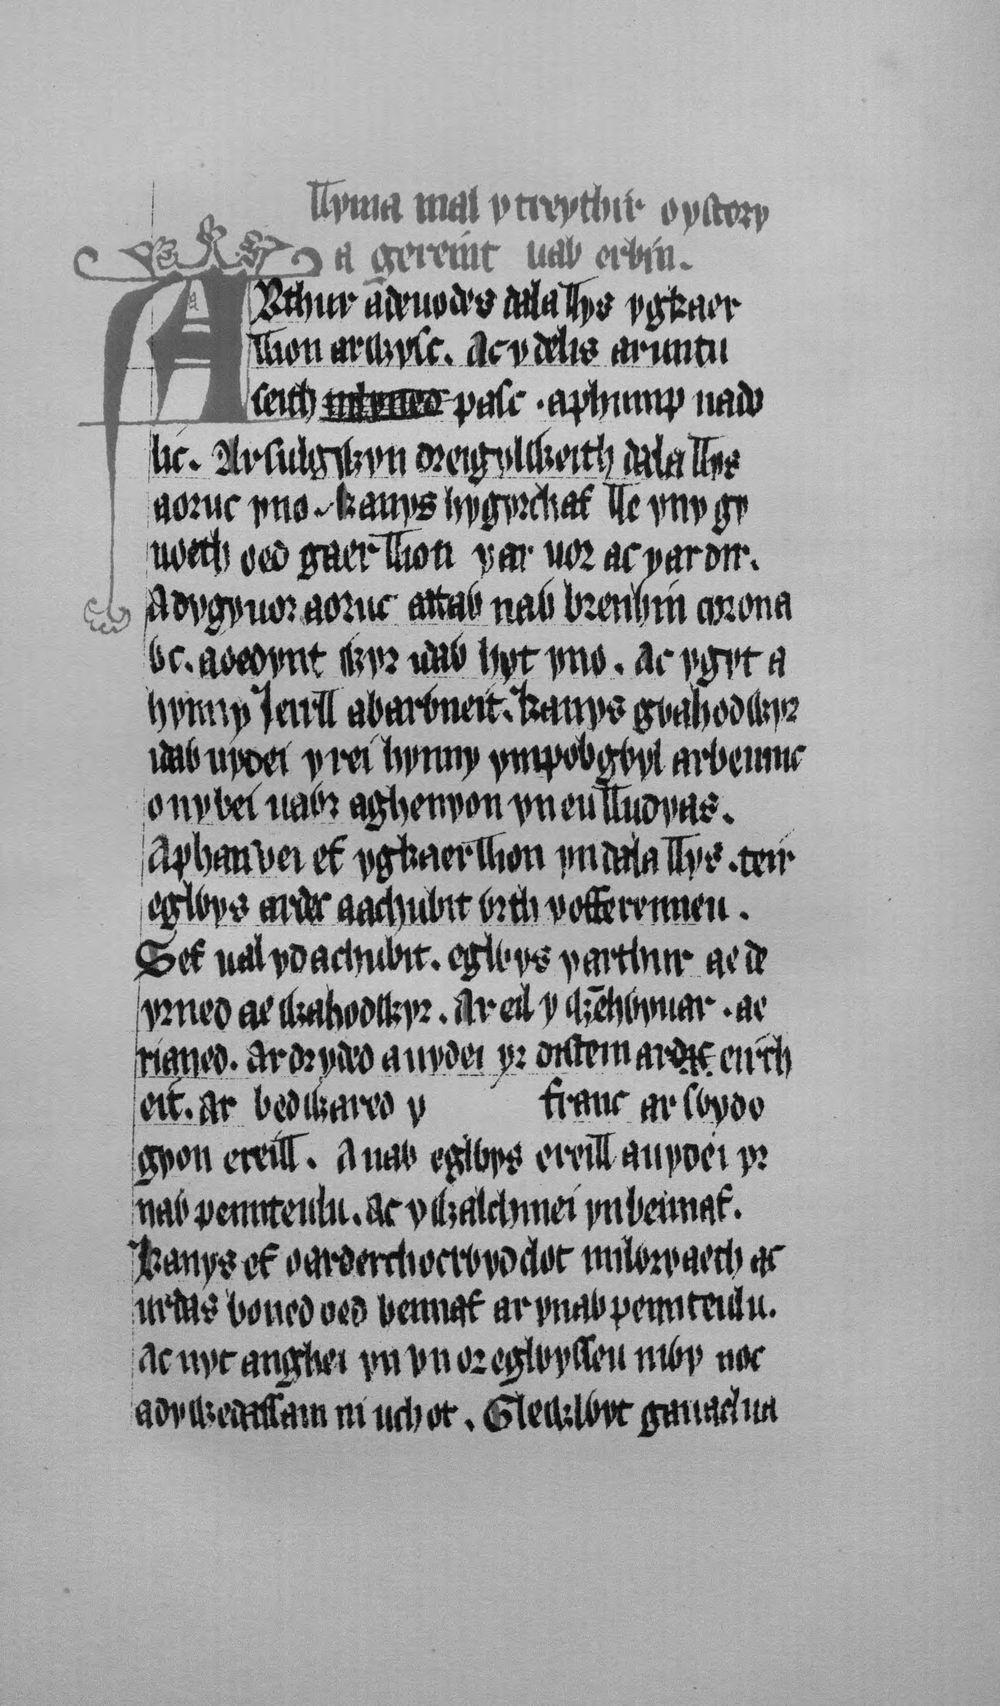 llyma mal y treythir o ystory
a gereint uab erbin.
ARthur a deuodes dala llys ygkaer
llion arỽysc. Ac y delis ar untu
seith pasc . a phump nado
lic. Ar sulgỽyn dreigylỽeith dala llys
aoruc yno. kanys hygyrchaf lle yny gy
uoeth oed gaer llion y ar uor ac y ar dir.
A dygyuor aoruc attaỽ naỽ brenhin corona
ỽc. a oedynt ỽyr idaỽ hyt yno. Ac ygyt a
hynny Ieirll a barỽneit. kanys gỽahodỽyr
idaỽ uydei y rei hynny ympob gỽyl arbennic
o ny bei uaỽr aghenyon yn eu lludyas.
A phan vei ef ygkaer llion yn dala llys. teir
eglỽys ar dec a achubit ỽrth y offerenneu.
Sef ual yd achubit. eglỽys y arthur ae de
yrned ae ỽahodỽyr. Ar eil y ỽenhỽyuar. ae
rianed. Ar dryded a uydei yr distein ar eirch
eit. Ar bedỽared y franc ar sỽydo
gyon ereill. A naỽ eglỽys ereill a uydei yr
naỽ penn teulu. Ac y ỽalchmei yn bennaf.
kanys ef o ardderchocrỽyd clot milỽryaeth ac
urdas boned oed bennaf ar y naỽ penn teulu.
Ac nyt anghei yn yn or eglỽysseu mỽy noc
a dyỽedassam ni uchot. Gleỽlỽyt gauaelua